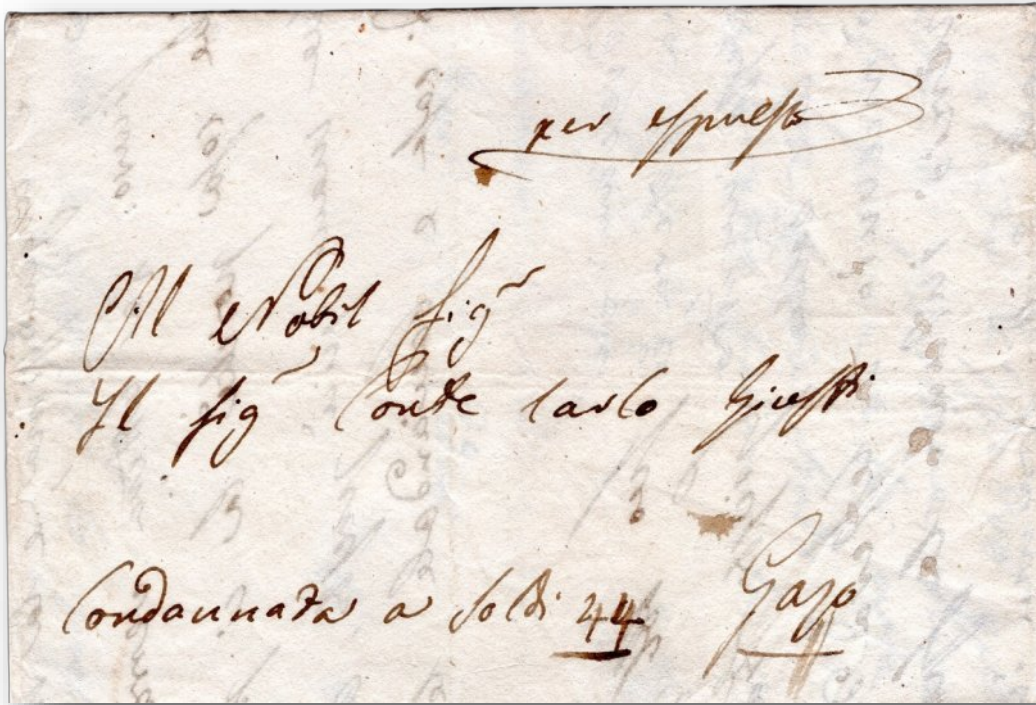 per espresso
Al Nobil Sig.r
Il Sig.r Conte Carlo Giusti
Condannata a soldi 44 Gazo